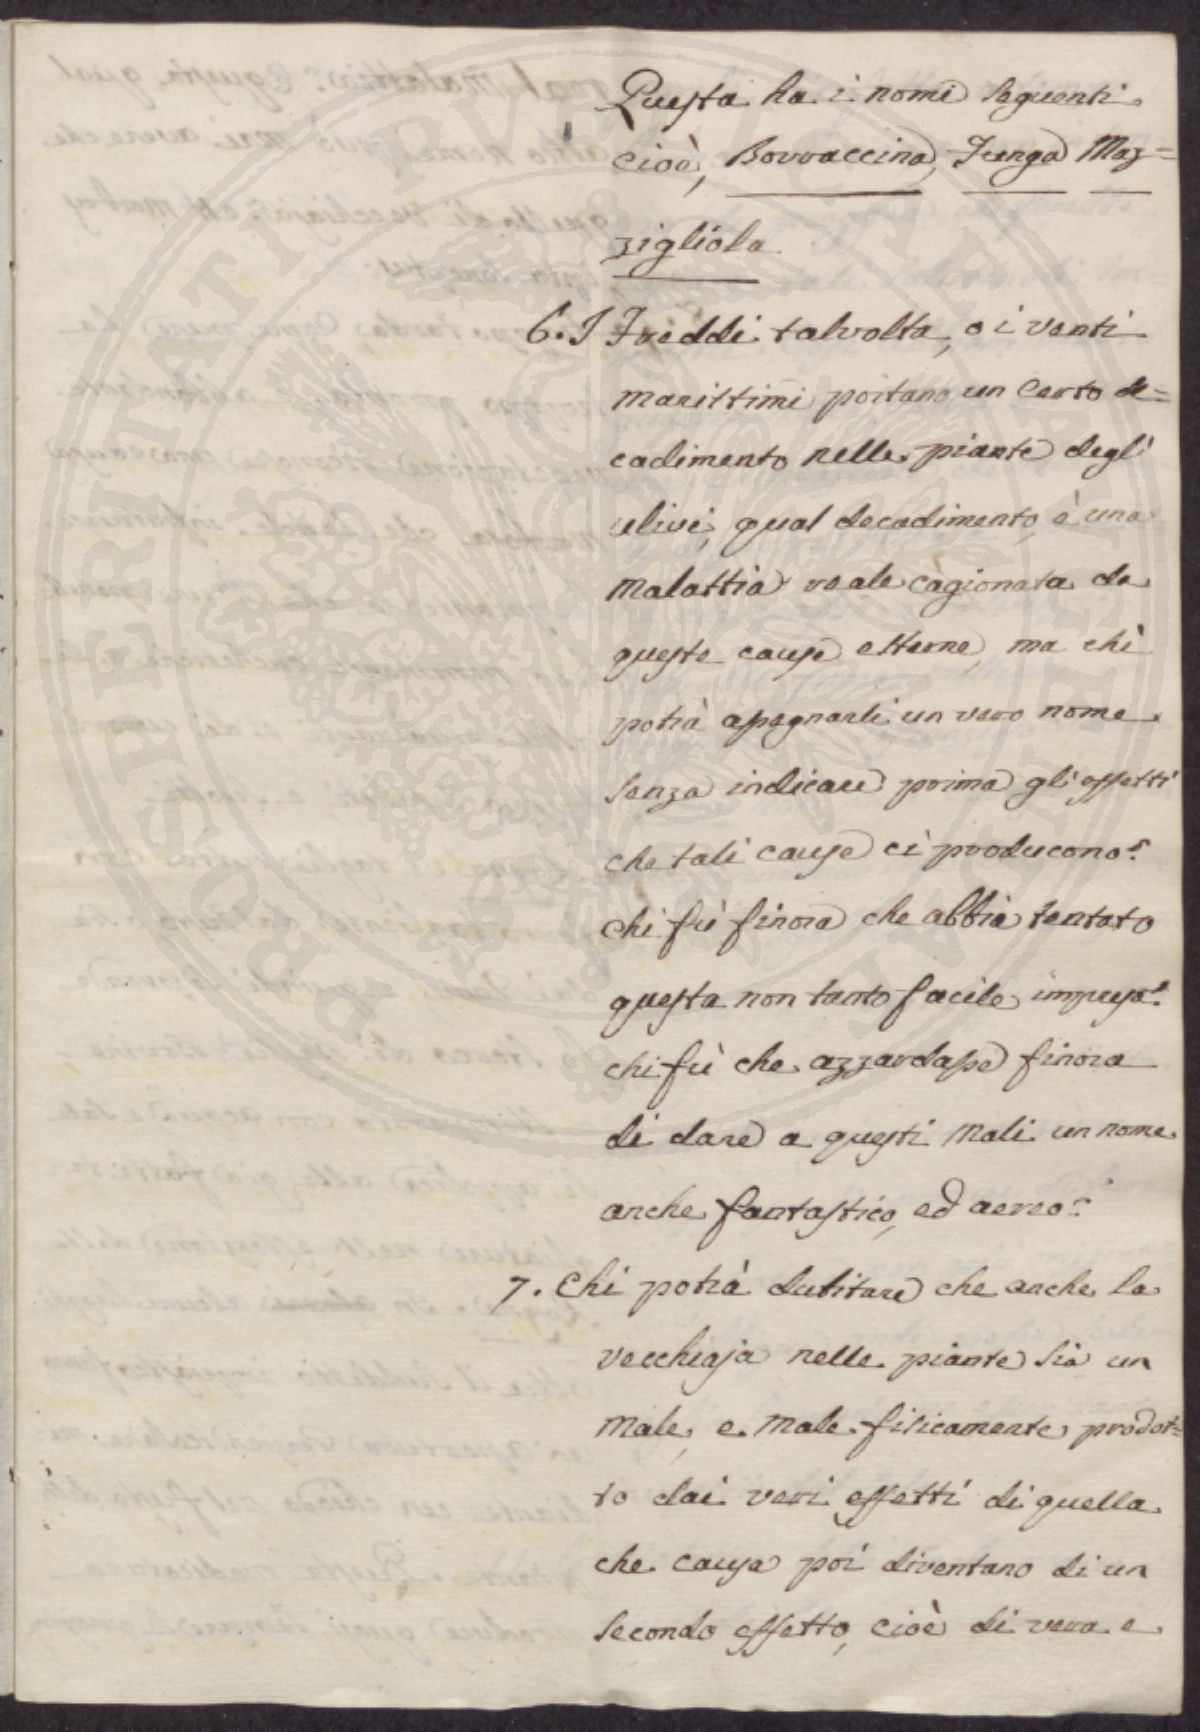 Questa ha i nomi seguenti
cioè, Bovvaccina, Funga Maz=
zigliola
6. I Freddi talvolta, o i venti
marittimi portano un certo de=
cadimento nelle piante degl'
ulivi, qual decadimento è una
malattia reale cagionata da
queste cause esterne, ma chi
potrà assegnarli un vero nome
senza indicare prima gl'effetti
che tali cause ci producono?
chi fù finora che abbia tentato
questa non tanto facile impresa?
chi fù che azzardasse finora
di dare a questi mali un nome
anche fantastico, ed aereo?
7. Chi potrà dubitare che anche la
vecchiaja nelle piante sia un
male, e male fisicamente prodot=
to dai veri effetti di quella
che causa poi diventano di un
secondo effetto, cioè di vera e
PROSPERITATI PVBLICAE